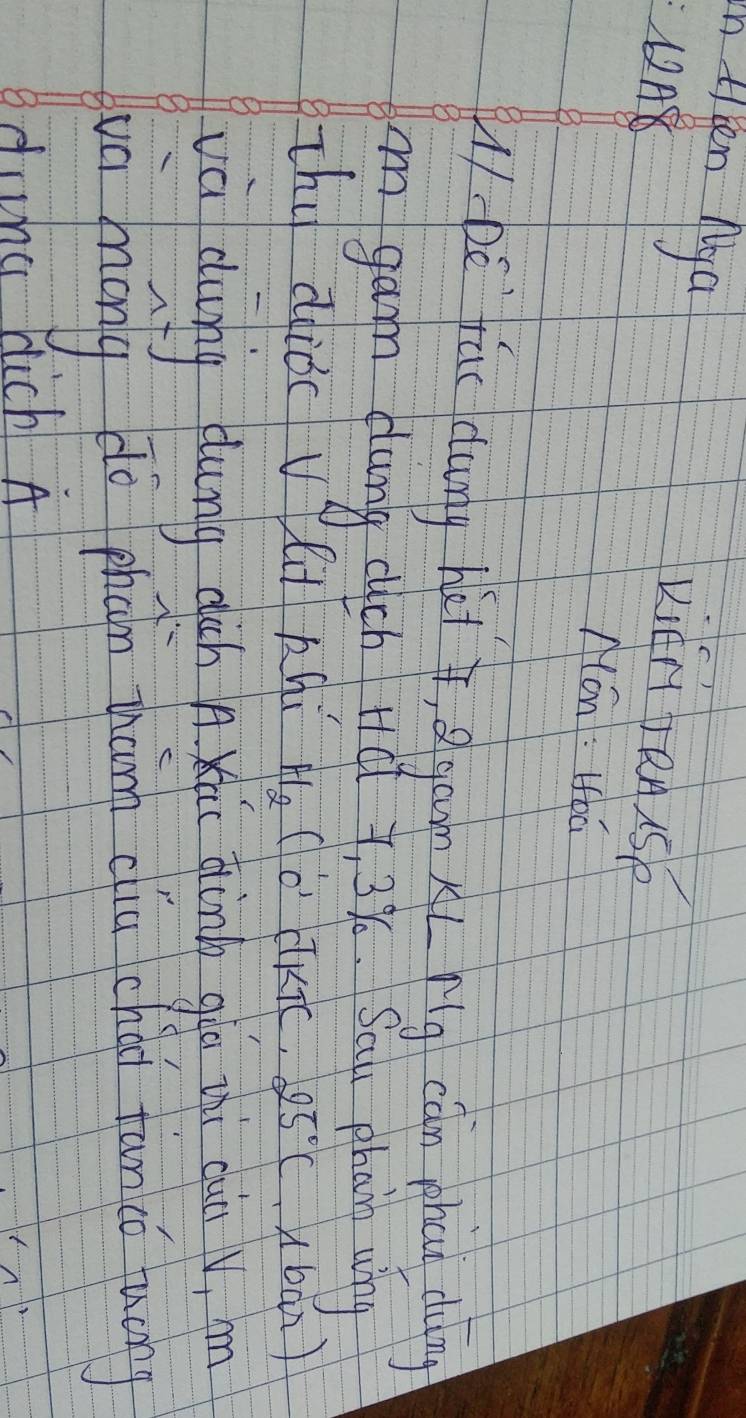 Hiền Nga
: 12A8
KIỂM TRA 15P
Môn: Hoá
1/ Để tác dụng hết 7,2 gam KL Mg cần phải dùng
m gam dung dịch HCl 7,3%. Sau phản ứng
thu được V lít khí H₂ (ở đktc, 25°C, 1 bar)
và dùng dung dịch A. Xác định giá trị của V, m
và nồng độ phần trăm của chất tan có trong
dung dịch A